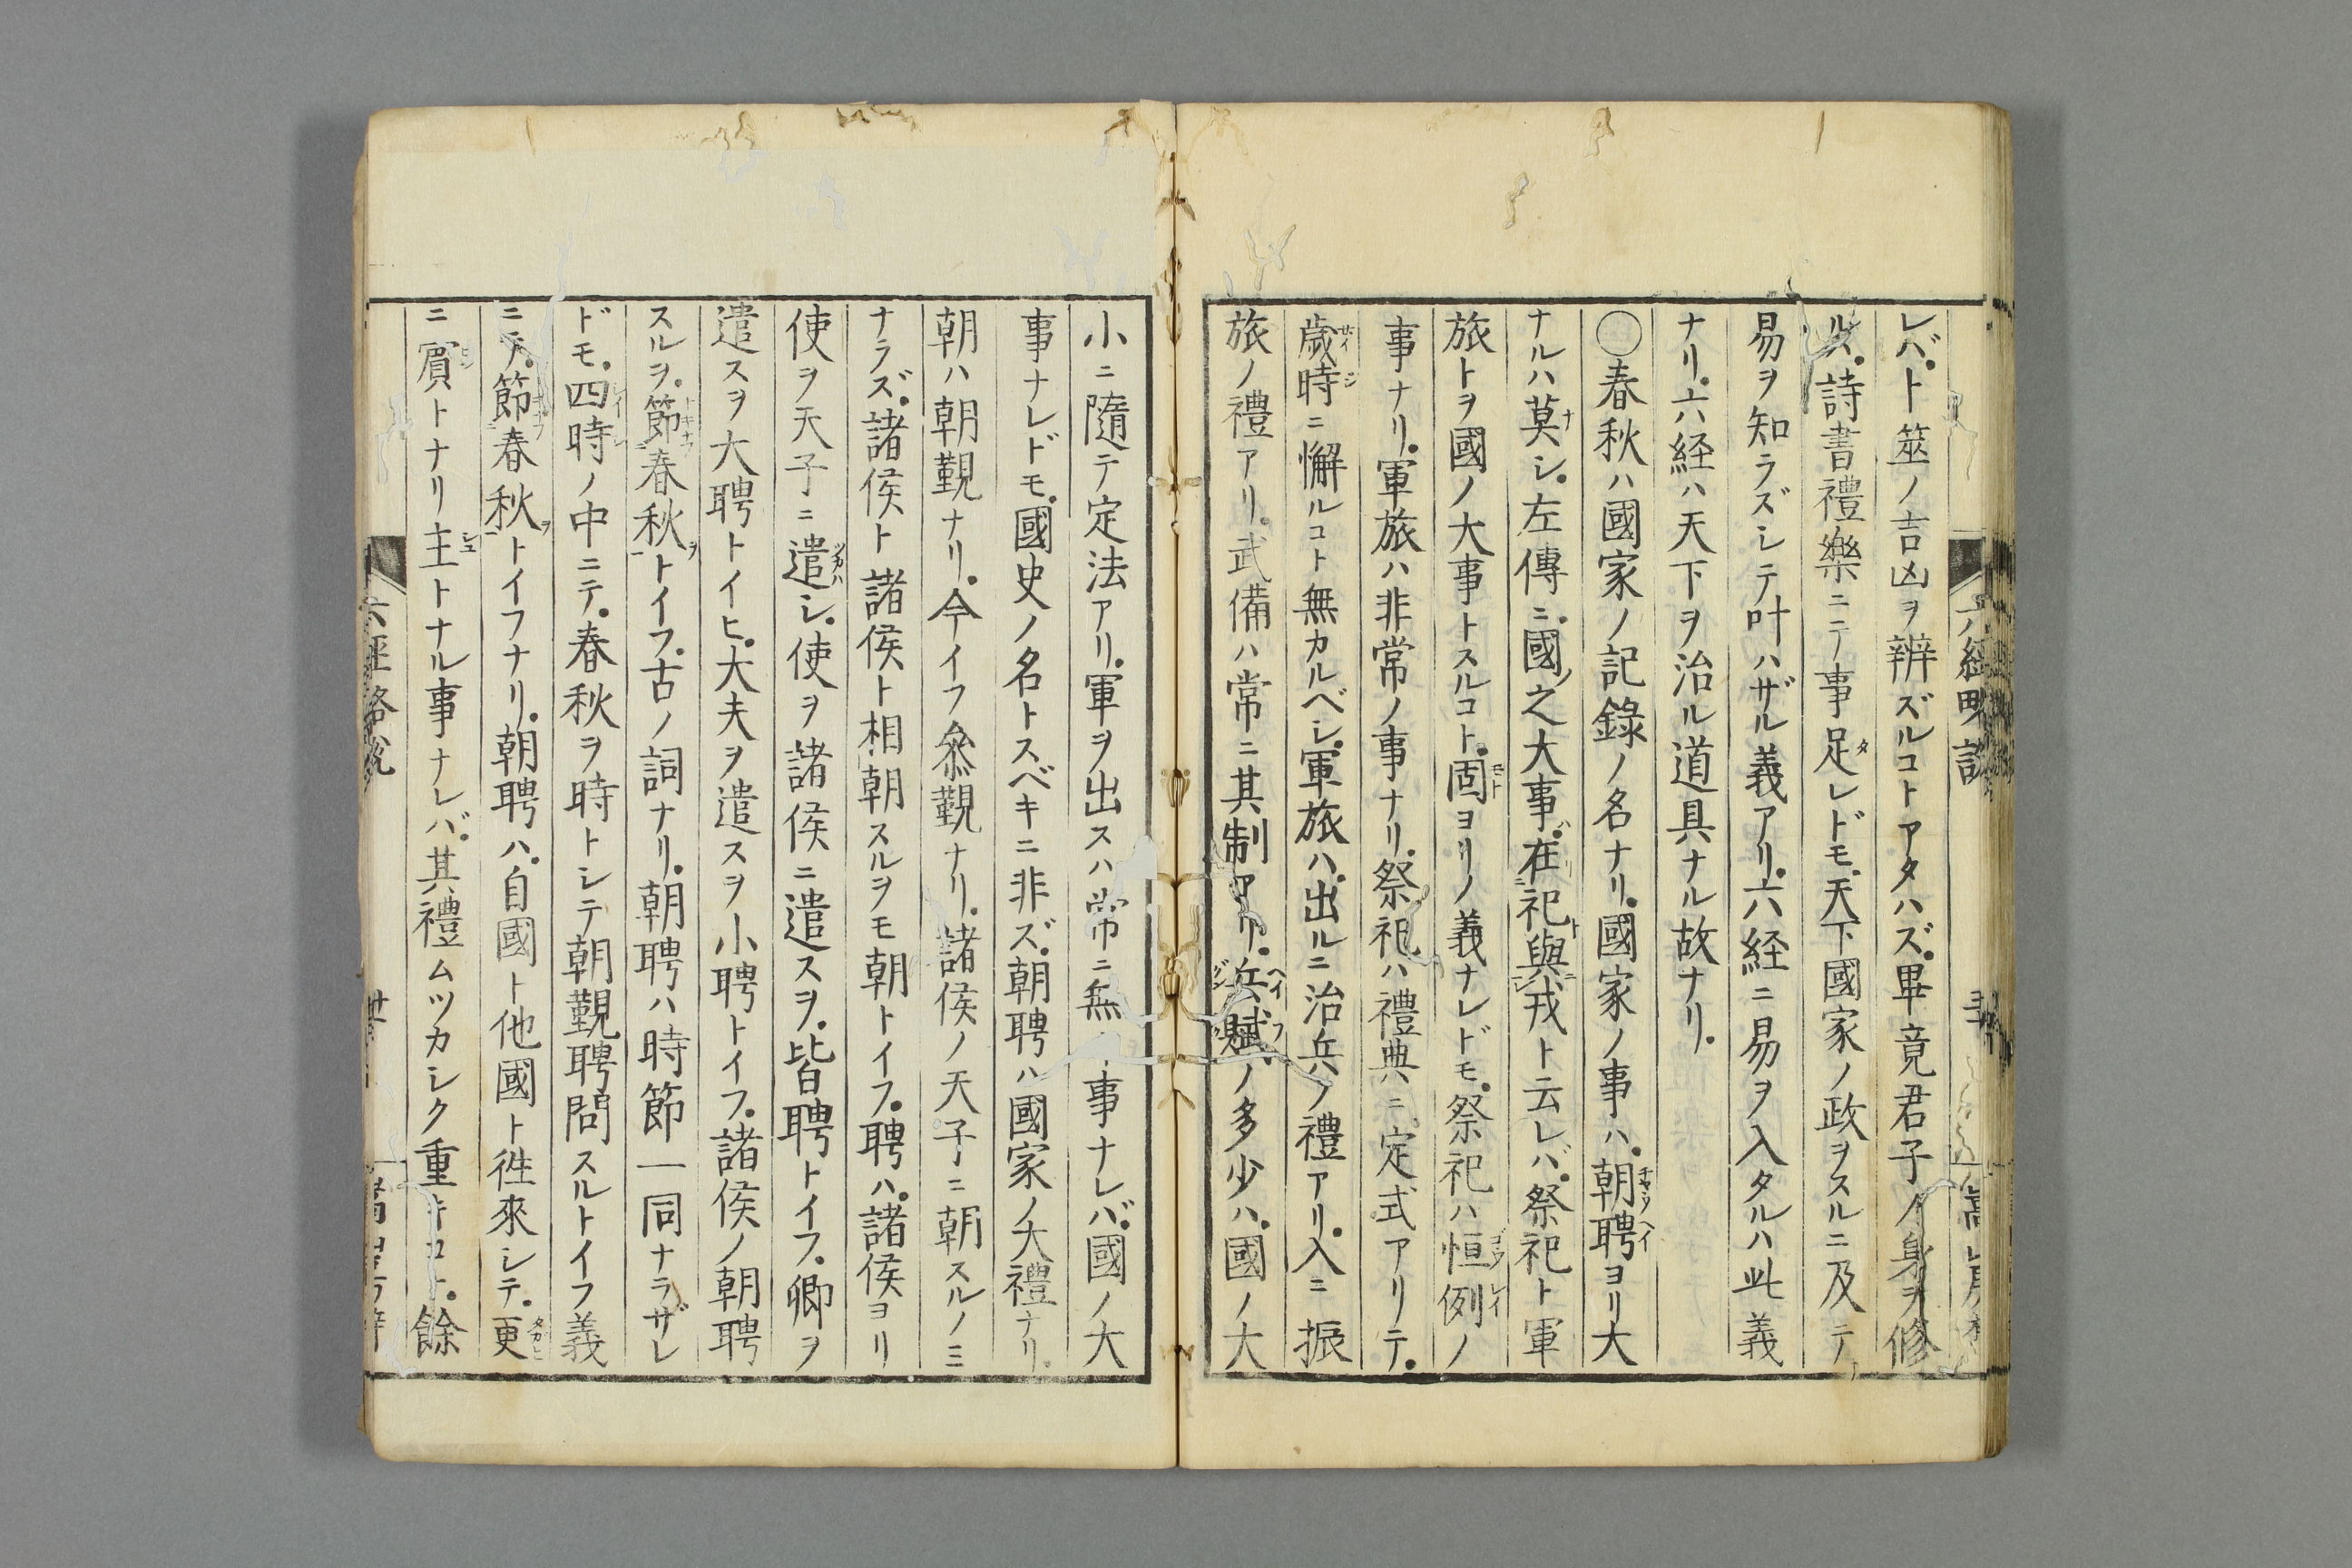 レバ。卜筮ノ吉凶ヲ辨ズルコトアタハズ。畢竟君子ノ身ヲ修
ル。詩書禮樂ニテ事足レドモ。天下國家ノ政ヲスルニ及テ
易ヲ知ラズシテ叶ハザル義アリ。六経ニ易ヲ入タルハ此義
ナリ。六経ハ天下ヲ治ル道具ナル故ナリ。
〇春秋ハ國家ノ記錄ノ名ナリ。國家ノ事ハ。朝聘ヨリ大
ナルハ莫シ。左傳ニ。國之大事。在祀與戎ト云レバ。祭祀ト軍
旅トヲ國ノ大事トスルコト。固ヨリノ義ナレドモ。祭祀ハ恒例ノ
事ナリ。軍旅ハ非常ノ事ナリ。祭祀ハ禮典ニ定式アリテ。
歲時ニ懈ルコト無カルベシ。軍旅ハ。出ルニ治兵ノ禮アリ。入ニ振
旅ノ禮アリ。武備ハ常ニ其制アリ。兵賦ノ多少ハ。國ノ大
小ニ隨テ定法アリ。軍ヲ出スハ常ニ無キ事ナレバ。國ノ大
事ナレドモ。國史ノ名トスベキニ非ズ。朝聘ハ國家ノ大禮ナリ。
朝ハ朝覲ナリ。今イフ叅覲ナリ。諸侯ノ天子ニ朝スルノミ
ナラズ。諸侯ト諸侯ト相朝スルヲモ朝トイフ。聘ハ。諸侯ヨリ
使ヲ天子ニ遣シ。使ヲ諸侯ニ遣スヲ。皆聘トイフ。卿ヲ
遣スヲ大聘トイヒ。大夫ヲ遣スヲ小聘トイフ。諸侯ノ朝聘
スルヲ。節春秋トイフ。古ノ詞ナリ。朝聘ハ時節一同ナラザレ
ドモ。四時ノ中ニテ。春秋ヲ時トシテ朝覲聘問スルトイフ義
ニテ。節春秋トイフナリ。朝聘ハ。自國ト他國ト徃來シテ。更
ニ賓トナリ主トナル事ナレバ。其禮ムツカシク重キコト。餘